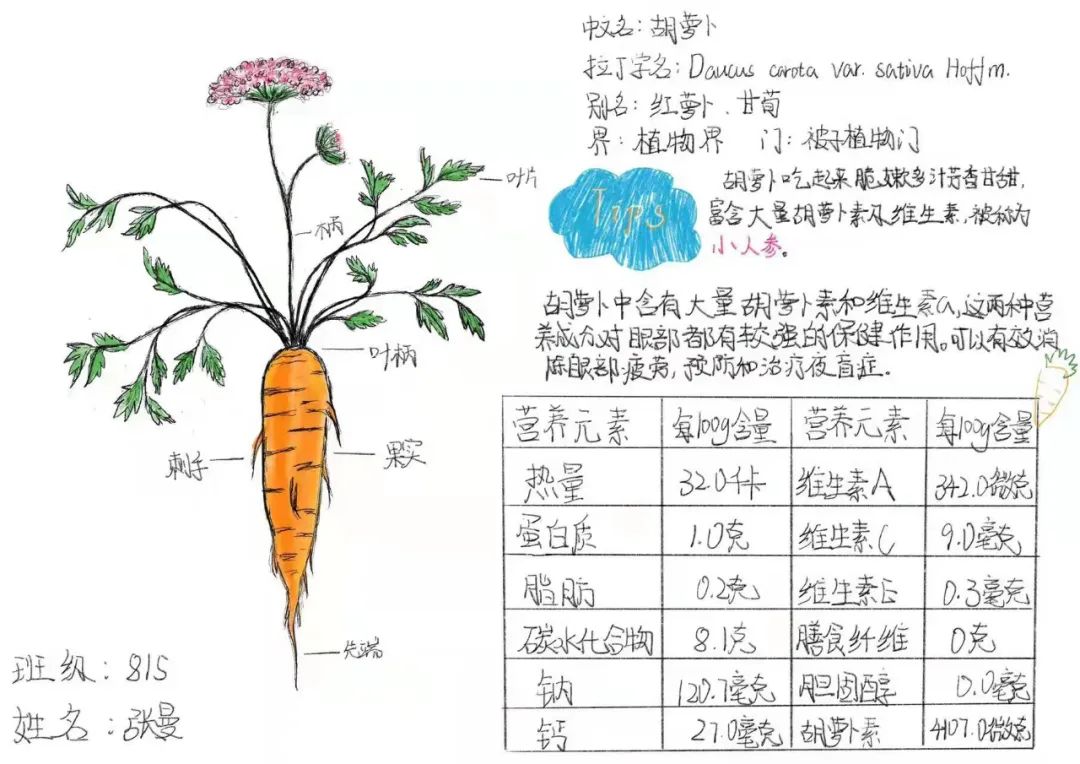 中文名：胡萝卜
拉丁学名：Daucus carota var. sativa Hoffm.
别名：红萝卜、甘荀
界：植物界 门：被子植物门
Tips
胡萝卜吃起来脆嫩多汁芳香甘甜，
富含大量胡萝卜素及维生素，被称为
小人参。
胡萝卜中含有大量胡萝卜素和维生素a，这两种营
养成分对眼部都有较强的保健作用。可以有效消
除眼部疲劳，预防和治疗夜盲症。
叶片
柄
叶柄
刺手
果实
尖端
营养元素 每100g含量 营养元素 每100g含量
热量 32.0千卡 维生素A 342.0微克
蛋白质 1.0克 维生素C 9.0毫克
脂肪 0.2克 维生素E 0.3毫克
碳水化合物 8.1克 膳食纤维 0克
钠 120.7毫克 胆固醇 0.0毫克
钙 27.0毫克 胡萝卜素 4107.0微克
班级：815
姓名：张曼